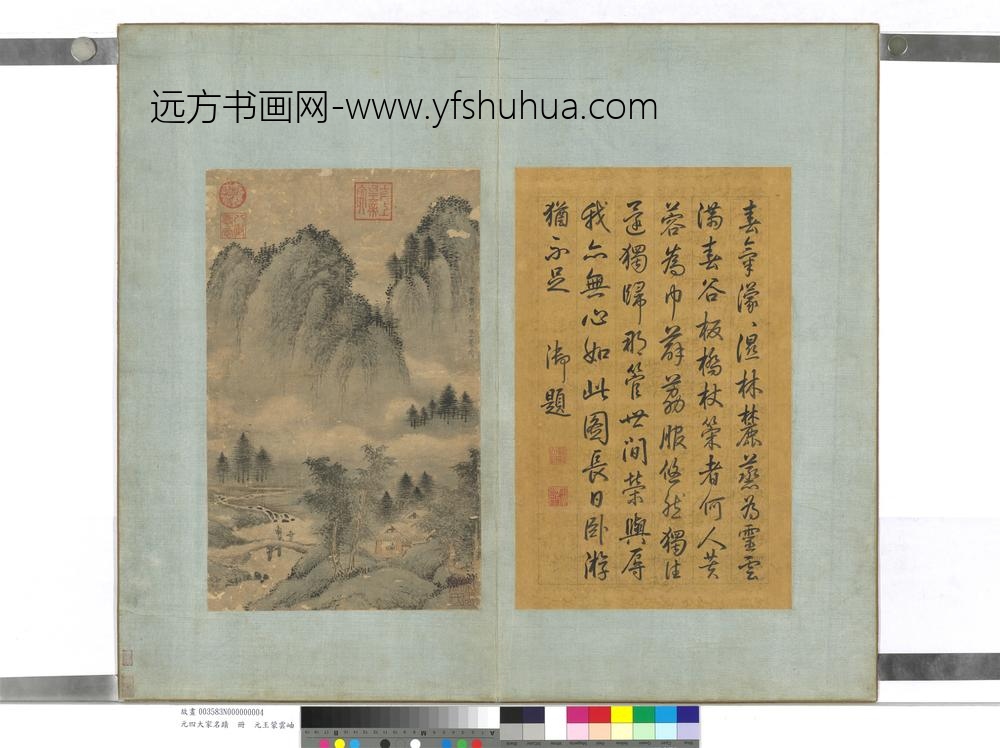 远方书画网-www.yfshuhua.com
春氣濛〻溼林麓蒸為靈雲
滿春谷板橋杖策者何人芙
蓉為巾薜荔服悠然獨往
還獨歸那管世間榮與辱
我亦無心如此圖長日臥游
猶不足 御題
故畫 003583N000000004
元四大家名蹟 冊 元王蒙雲岫